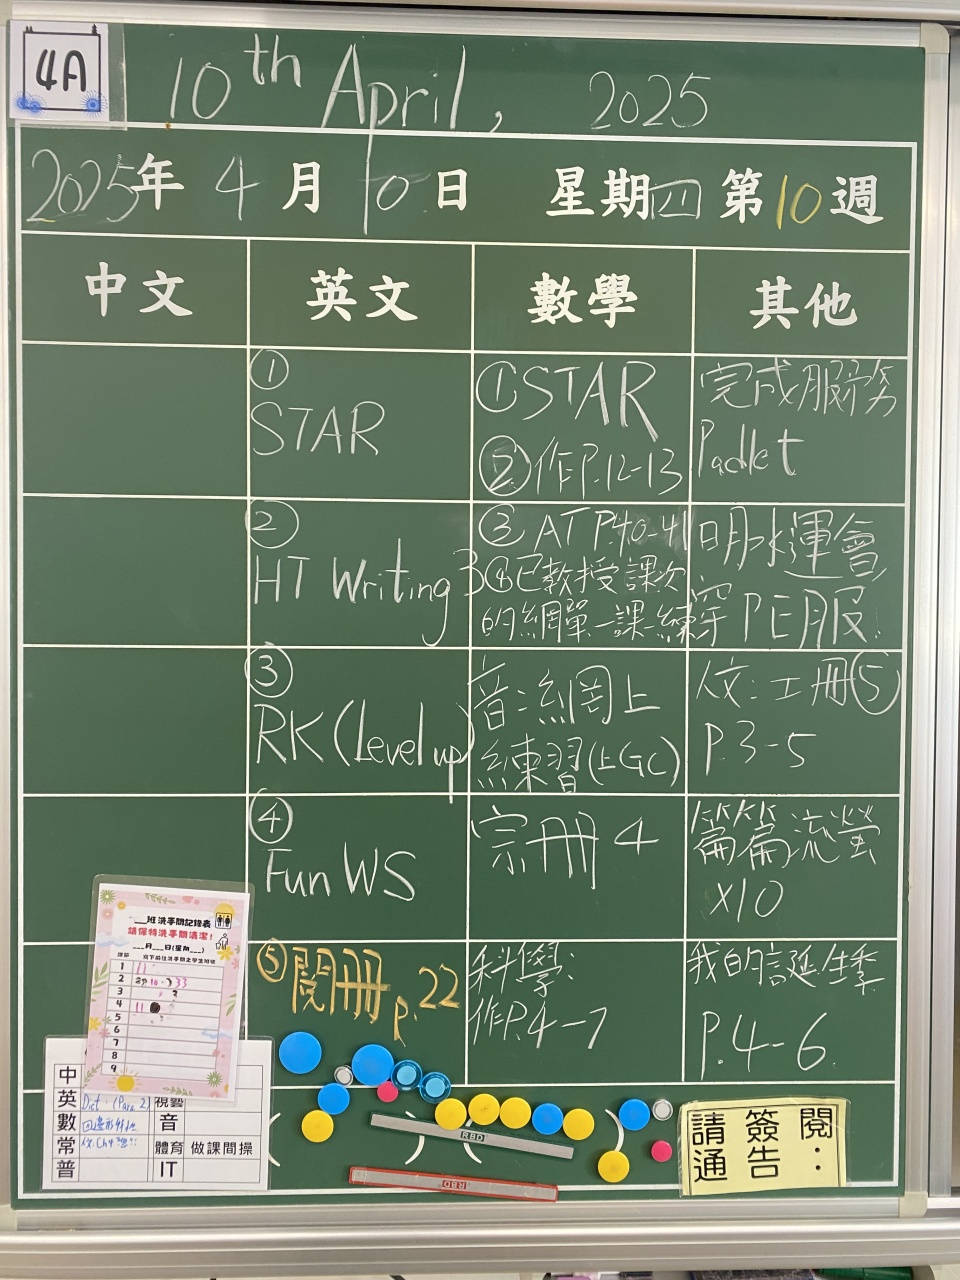 4A
10th April, 2025
2025年 4月 10日 星期四 第10週
中文 英文 數學 其他
①
STAR
②
HT Writing 3
③
RK (Level up)
④
Fun WS
⑤ 閱冊 p.22
① STAR
② 作P.12-13
③ AT P.40-41
④ 已教授課次
的網單一課一練
音:網上
練習(上GC)
宗冊 4
科學:
作P.4-7
完成服務
Padlet
明水運會
穿PE服
人文:工冊⑤
P.3-5
篇篇流螢
x10
我的誕生季
P.4-6
___班洗手間記錄表
請保持洗手間清潔!
___月___日(星期___)
課節 寫下前往洗手間之學生班號
1 11
2
3
4 11
5
6
7
8
9
中
英 Dict. (Para. 2) 視藝
數 音
常 體育 做課間操
普 IT
RBD
RBD
請簽閱
通告: